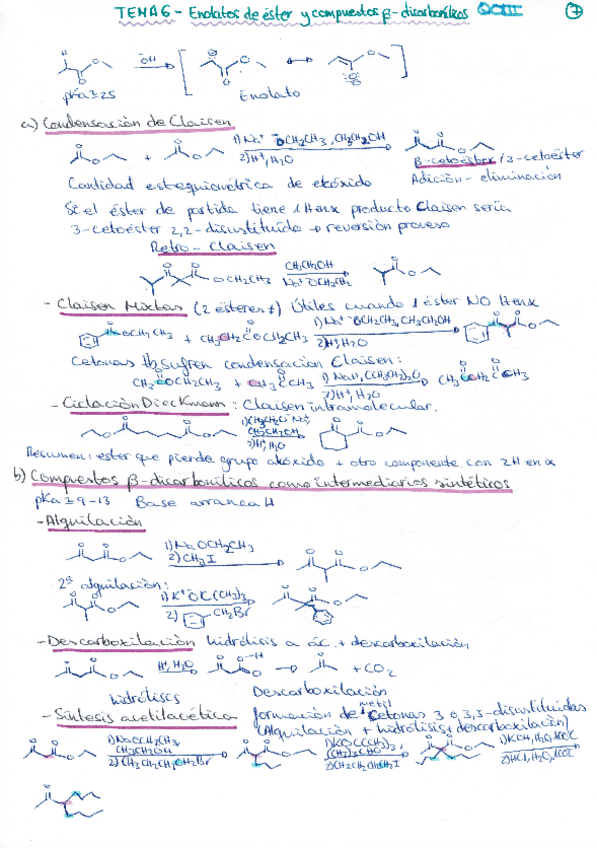 TEMA 6 - Enolatos de éster y compuestos β-dicarbonílicos QOIII 7
ŌH
pKa≅25 Enolato
a) Condensación de Claisen
1) Na⁺ ⁻OCH₂CH₃, CH₃CH₂OH
+
2) H⁺, H₂O
β-cetoéster / 3-cetoéster
Cantidad estequiométrica de etóxido Adición-eliminación
Si el éster de partida tiene 1 H en α producto Claisen sería
3-cetoéster 2,2-disustituido → reversión proceso
Retro-Claisen
OCH₂CH₃ CH₃CH₂OH
Na⁺ ⁻OCH₂CH₃
- Claisen Mixtas (2 ésteres ≠) Útiles cuando 1 éster NO H en α
OCH₂CH₃ + CH₃CH₂COCH₂CH₃ 1) Na⁺ ⁻OCH₂CH₃, CH₃CH₂OH
2) H⁺, H₂O
Cetonas tb sufren condensación Claisen:
CH₃COCH₂CH₃ + CH₃CCH₃ 1) NaH, (CH₃CH₂)₂O CH₃CCH₂CCH₃
2) H⁺, H₂O
- Ciclación Dieckmann: Claisen intramolecular.
1) CH₃CH₂O⁻ Na⁺
CH₃CH₂OH
2) H⁺, H₂O
Resumen: ester que pierde grupo alcóxido + otro componente con 2H en α
b) Compuestos β-dicarbonílicos como intermediarios sintéticos
pKa ≅ 9-13 Base arranca H
- Alquilación
1) NaOCH₂CH₃
2) CH₃I
2ª alquilación:
1) K⁺ ⁻OC(CH₃)₃
2) CH₂Br
- Descarboxilación hidrólisis a ác. + descarboxilación
H⁺, H₂O → + CO₂
hidrólisis Descarboxilación
- Síntesis acetilacética formación de metil cetonas 3 o 3,3-disustituidas
(Alquilación + hidrólisis + descarboxilación)
1) NaOCH₂CH₃,
CH₃CH₂OH
2) CH₃CH₂CH₂CH₂Br
1) KOC(CH₃)₃,
(CH₃)₃COH
2) CH₃CH₂CH₂CH₂I
1) KOH, H₂O, 100°C
2) HCl, H₂O, 100°C